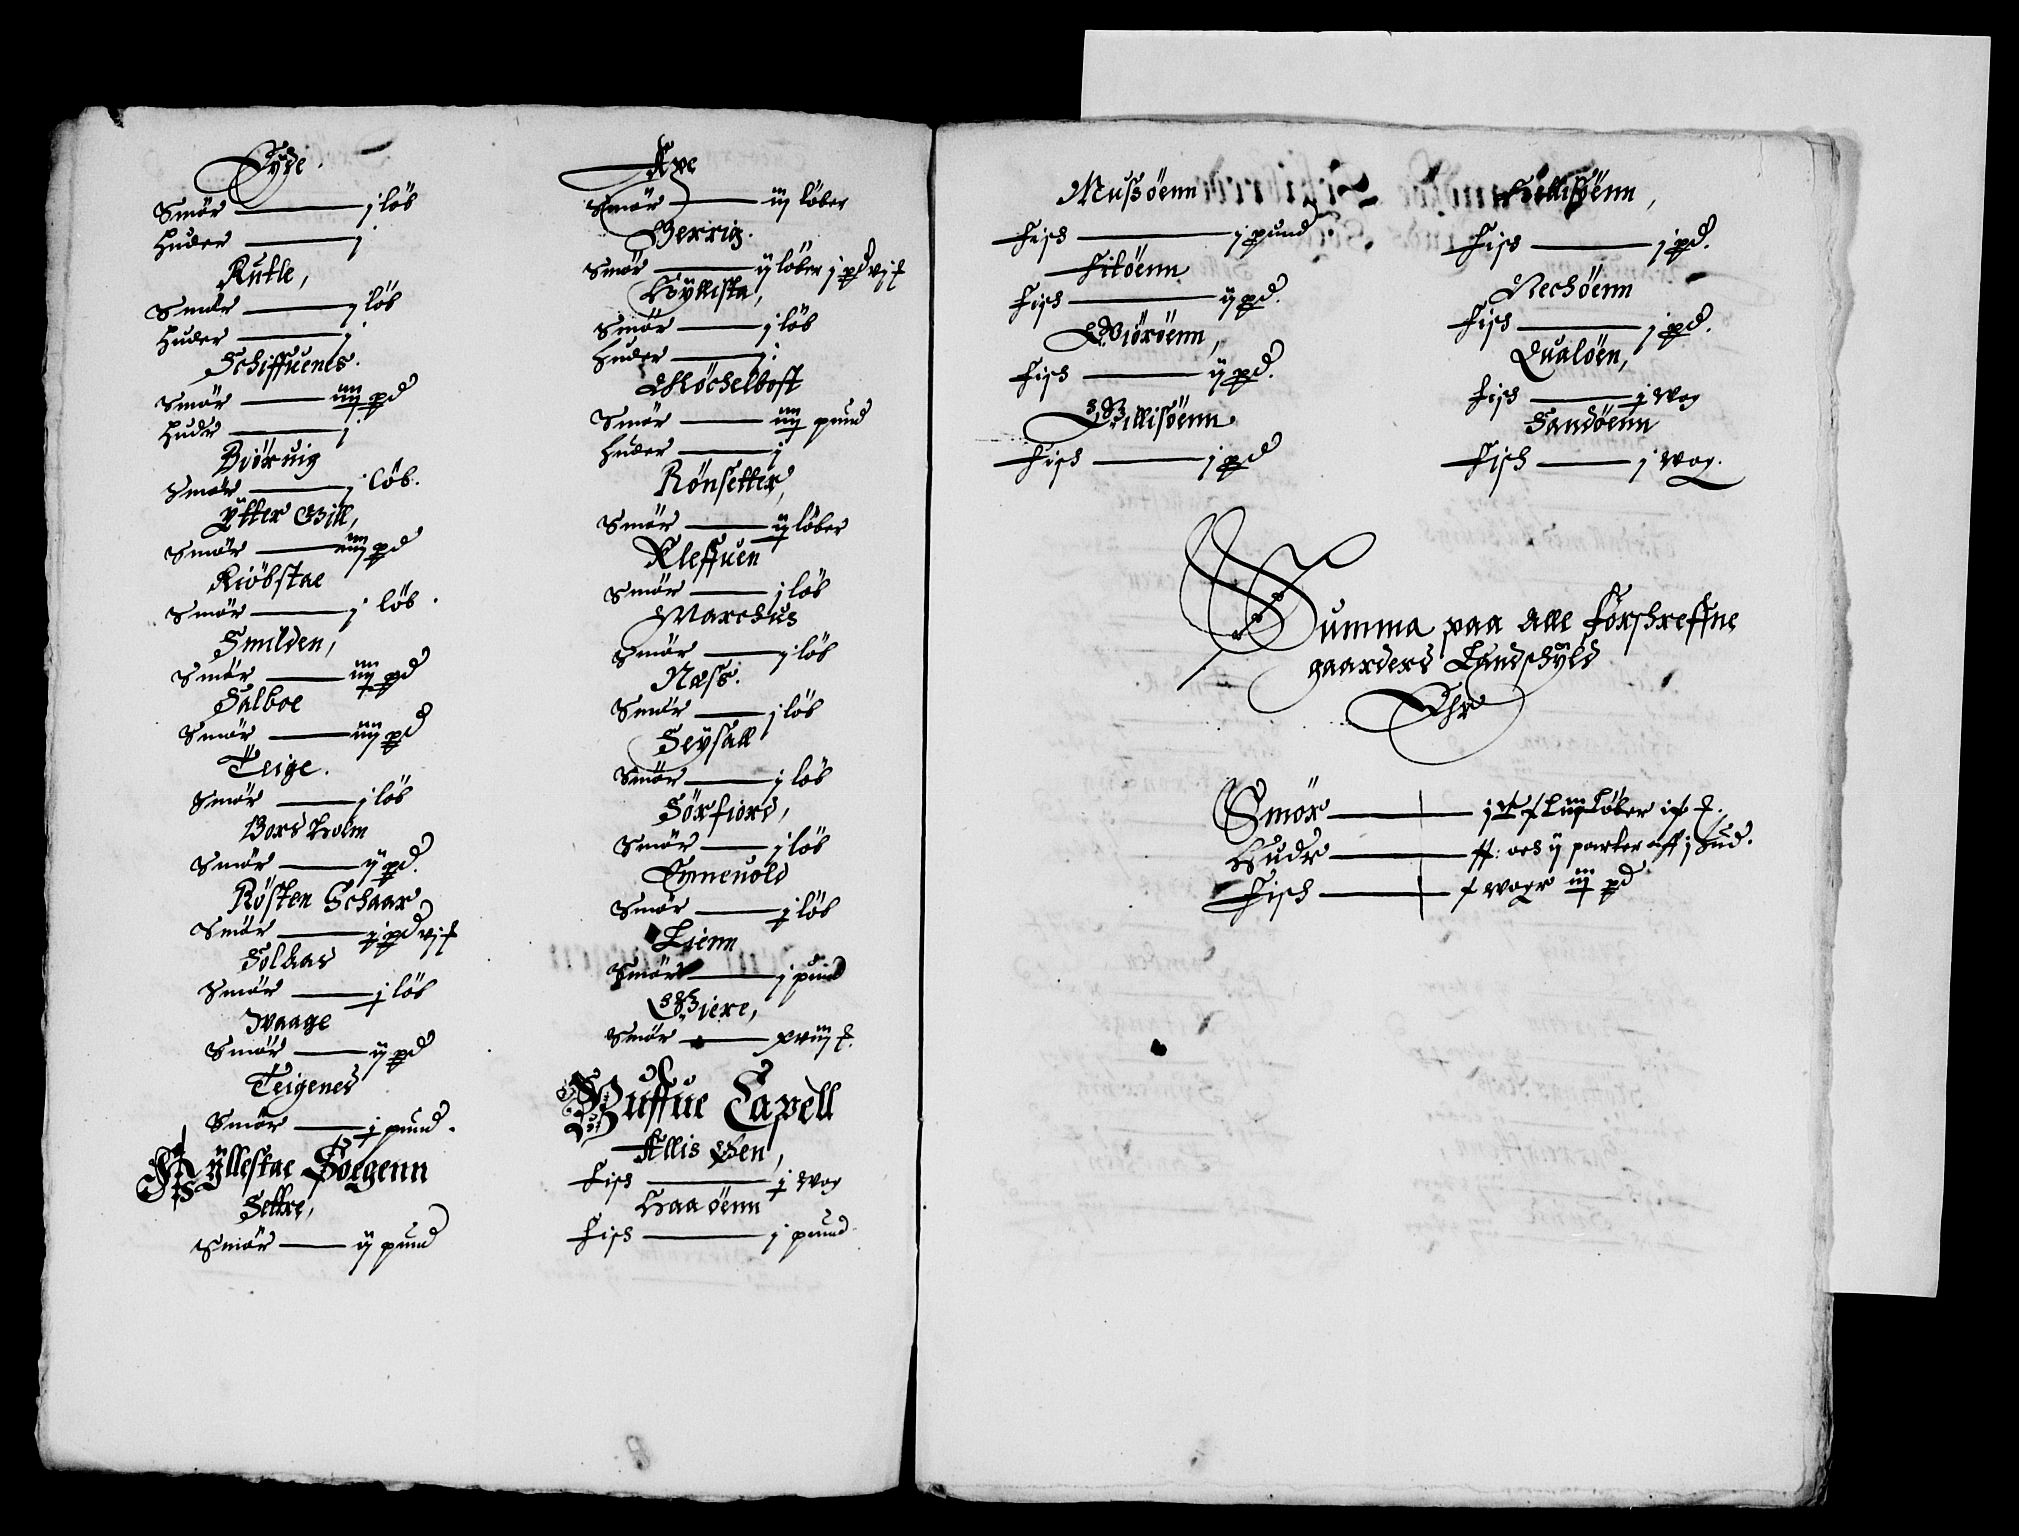 Eyde.
Smör — j löb
Huder — j
Rutle,
Smör — j löb
Huder — j
Schiffuenes.
Smör — iiij pd
Hudr — j
Biörnig
Smör — j löb.
Ytter Gill,
Smör — iiij pd
Kiöbstae
Smör — j löb.
Smilden,
Smör — iiij pd
Salboe
Smör — iiij pd
Teige.
Smör — j löb
Bordholm
Smör — ij pd.
Rösten Schaar,
Smör — j pd vj ₰
Solhar
Smör — j löb
Waage
Smör — ij pd
Teigenes
Smör — j pund.
Hyllestae Soegenn
Settre,
Smör — ij pund
Axe
Smör — iij löber
Berrig.
Smör — ij löber j pd vj ₰
Hyllista,
Smör — j löb
Huder — j
Möchelbost
Smör — iiij pund
Huder — j
Rönsetter,
Smör — ij löber
Kleffuen
Smör — j löb
Marchus
Smör — j löb
Næss.
Smör — j löb
Seysall
Smör — j löb
Sörfiord,
Smör — j löb
Emneuold
Smör — j löb
Lienn
Smör — j pund
Giere,
Smör — xviij ₰.
Buffue Capell
Allis Øen,
Fisch — j wog
Haaöenn
Fisch — j pund
Mussöenn
Fisch — j pund
Fitöenn
Fisch — ij pd.
Giöröenn,
Fisch — ij pd.
Gillisöenn
Fisch — j pd
Hellisöenn,
Fisch — j pd.
Nechöenn
Fisch — j pd.
Qualöen,
Fisch — j wog
Sandöenn
Fisch — j wog.
Summa paa alle forschreffne
gaarders Landschyld
Ehr
Smör —
Hudr — och ij parter aff j hud.
Fisch — x woger iiij pd